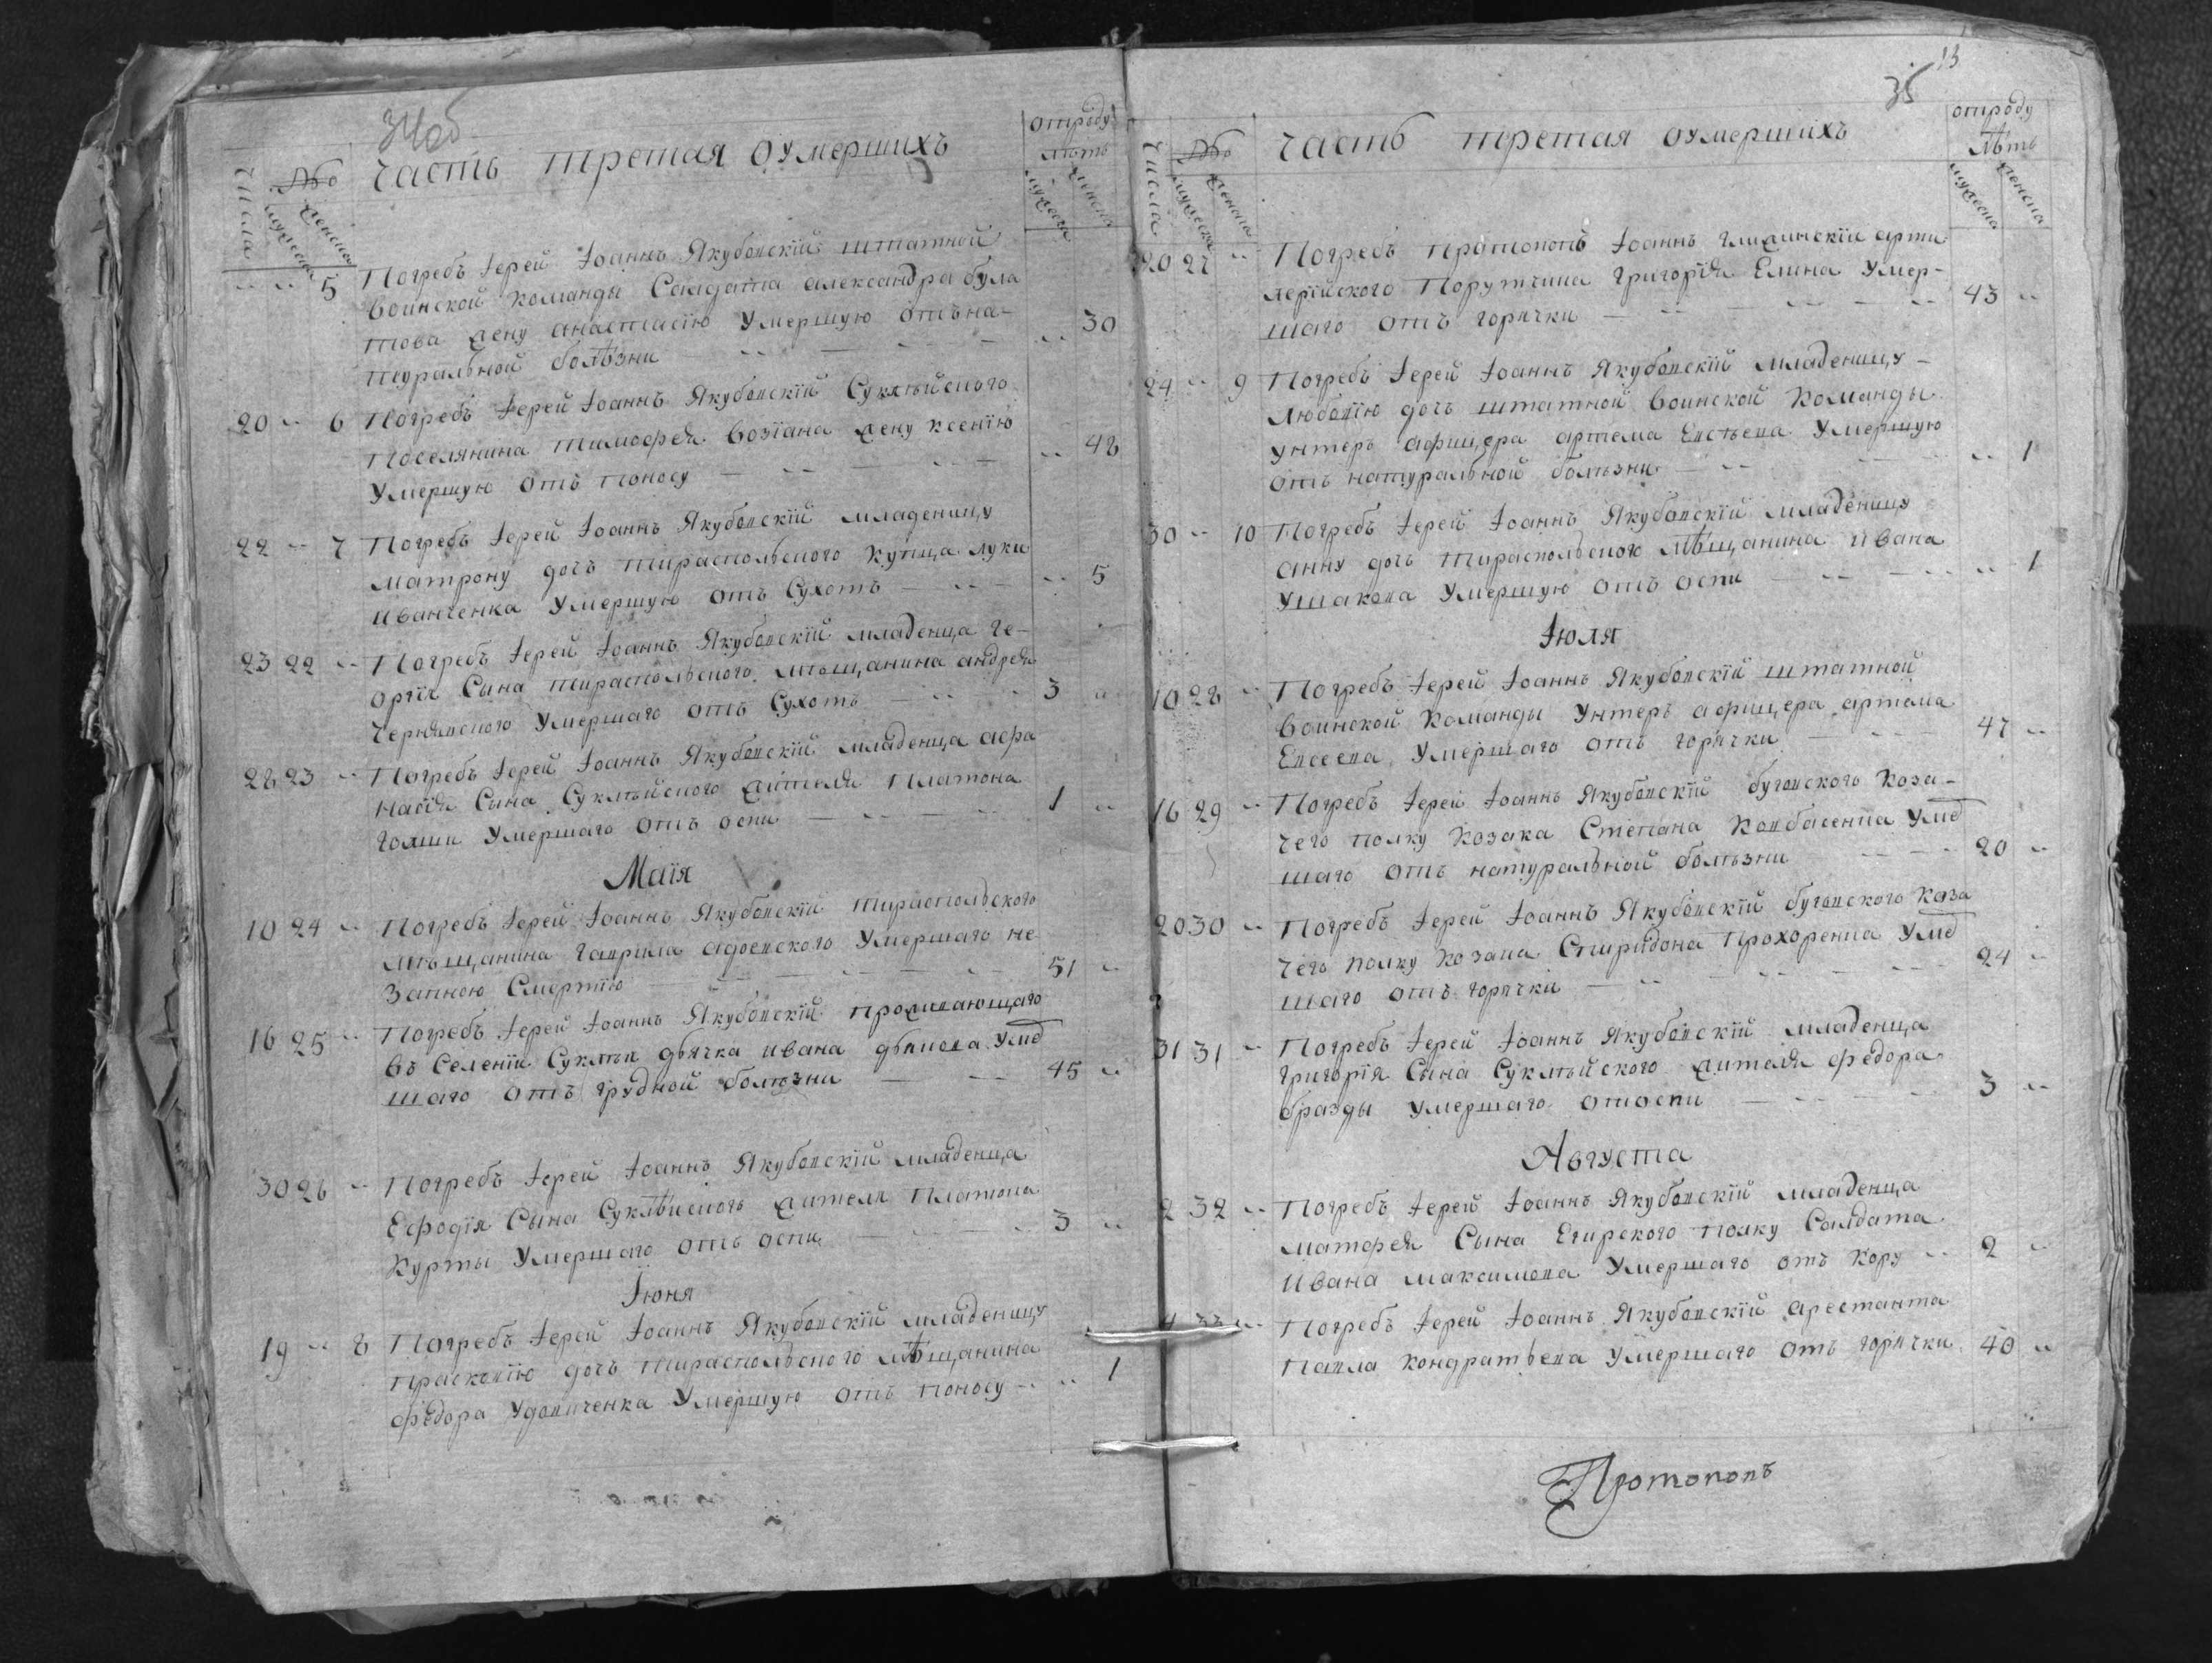 34об
Часть третая оумершихъ
отроду
лѣтъ
числа
№о
мужеска
женска
мужеска
женска
5 Погребъ Іерей Іоаннъ Якубовскій штатной
воинской команды Солдата александра була
това жену анастасію умершую отъ на-
туральной болѣзни 30
20 6 Погребъ Іерей Іоаннъ Якубовскій Суклѣйского
поселянина тимофея возіана жену ксенію
умершую отъ поносу 48
22 7 Погребъ Іерей Іоаннъ Якубовскій младеницу
матрону дочъ тираспольского купца луки
иванченка умершую отъ Сухотъ 5
23 22 Погребъ Іерей Іоаннъ Якубовскій младенца ге-
оргія Сына тираспольского мѣщанина андрея
чернявского умершаго отъ Сухотъ 3
28 23 Погребъ Іерей Іоаннъ Якубовскій младенца афа
насія Сына Суклѣйского жителя Платона
умершаго отъ оспи 1
Маія
10 24 Погребъ Іерей Іоаннъ Якубовскій тираспольского
мѣщанина гаврила умершаго не
запною Смертію 51
16 25 Погребъ Іерей Іоаннъ Якубовскій проживающаго
въ Селеніи Суклѣи дьячка ивана умѐ
шаго отъ грудной болѣзни 45
30 26 Погребъ Іерей Іоаннъ Якубовскій младенца
Ефодія Сына Суклѣйского жителя Платона
Курты умершаго отъ оспи 3
Іюня
19 8 Погребъ Іерей Іоаннъ Якубовскій младеницу
прасковію дочъ тираспольского мѣщанина
федора удовиченка умершую отъ поносу 1
13
35
Часть третая оумершихъ
отроду
лѣтъ
числа
№о
мужеска
женска
мужеска
женска
20 27 Погребъ протопопъ Іоаннъ глижинскій арти
лерійского Порутчика григорія Елина умер-
шаго отъ горячки 43
24 9 Погребъ Іерей Іоаннъ Якубовскій младеницу
любовію дочъ штатной воинской команды
унтеръ афицера артема Евсѣева умершую
отъ натуральной болѣзни 1
30 10 Погребъ Іерей Іоаннъ Якубовскій младеницу
анну дочъ тираспольского мѣщанина ивана
ушакова умершую отъ оспи 1
Іюля
10 28 Погребъ Іерей Іоаннъ Якубовскій штатной
воинской команды унтеръ афицера артема
Евсеева умершаго отъ горячки 47
16 29 Погребъ Іерей Іоаннъ Якубовскій бугского коза-
чего полку козака Степана Ковбасенка умѐ
шаго отъ натуральной болѣзни 20
20 30 Погребъ Іерей Іоаннъ Якубовскій бугского каза
чего полку козака Спиридона Прохоренка умѐ
шаго отъ горячки 24
31 31 Погребъ Іерей Іоаннъ Якубовскій младенца
григорія Сына Суклѣйского жителя федора
бразды умершаго отъоспи 3
Августа
2 32 Погребъ Іерей Іоаннъ Якубовскій младенца
матфея Сына Егирского полку Салдата
ивана максимова умершаго отъ кору 2
4 33 Погребъ Іерей Іоаннъ Якубовскій арестанта
Павла кондратьева умершаго отъ горячки 40
Протопопъ